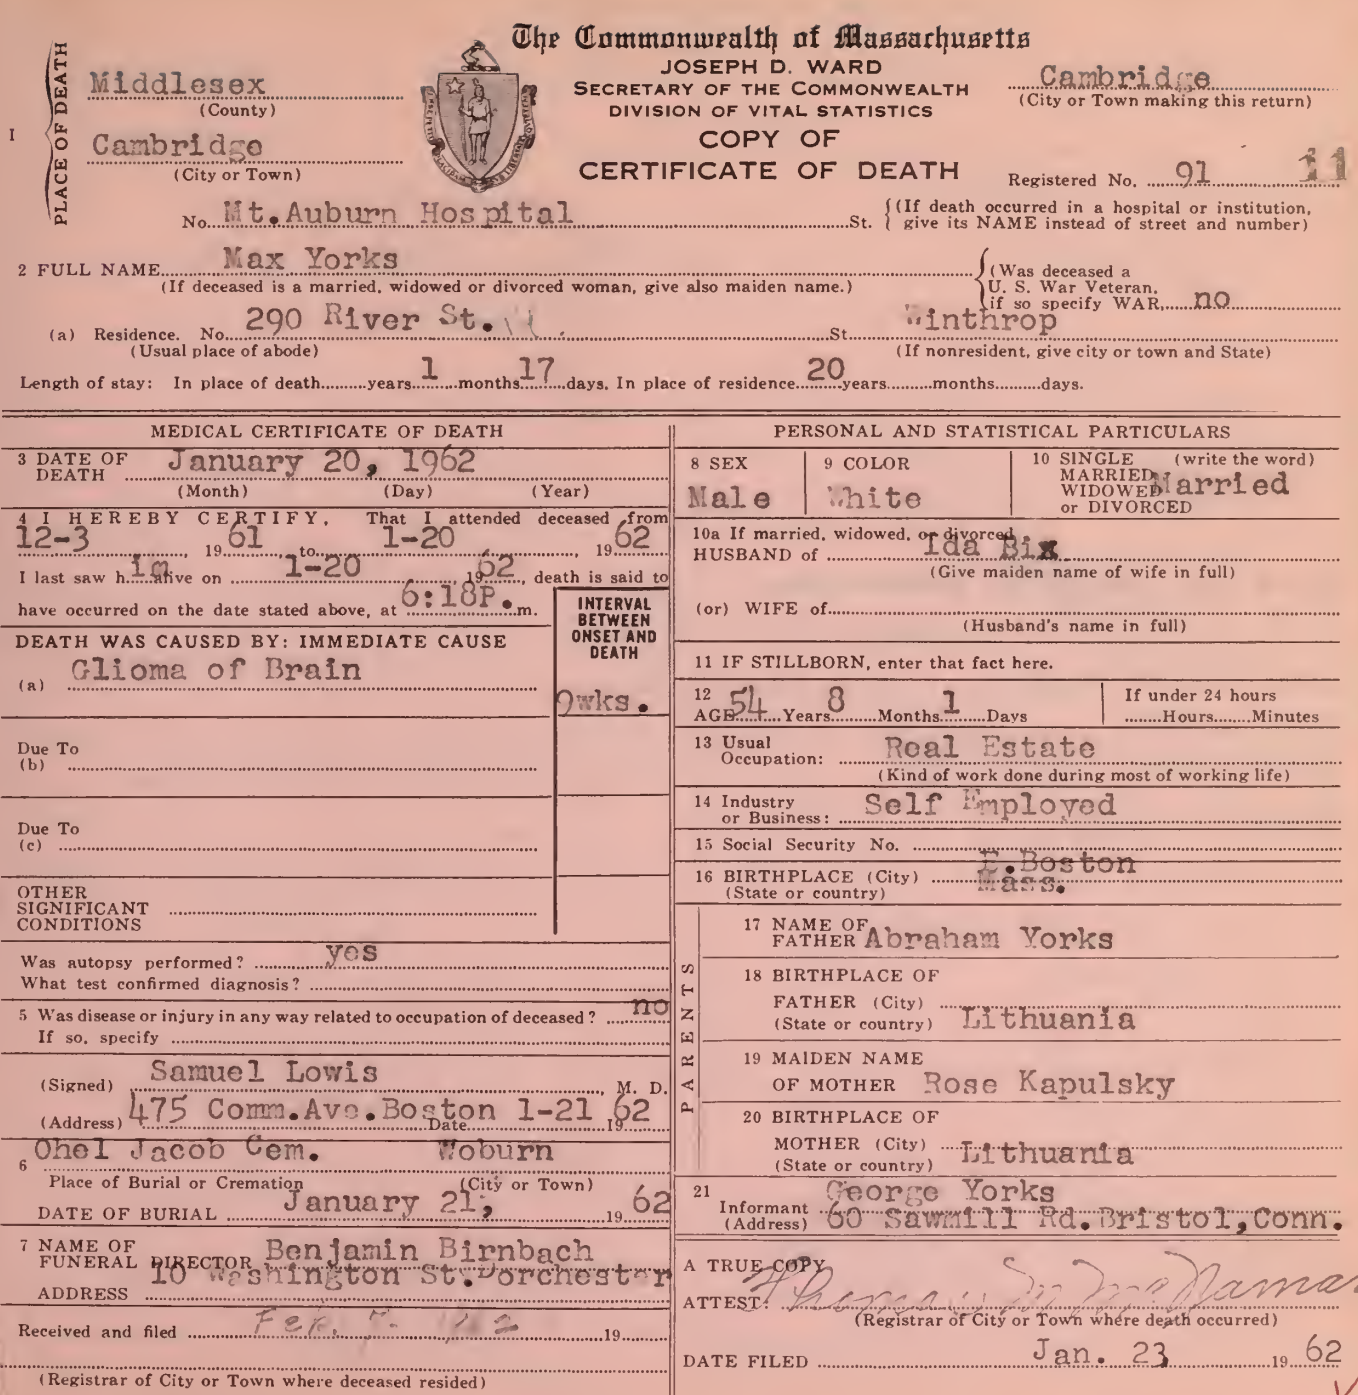 The Commonwealth of Massachusetts
JOSEPH D. WARD
SECRETARY OF THE COMMONWEALTH
DIVISION OF VITAL STATISTICS
COPY OF
CERTIFICATE OF DEATH
1 PLACE OF DEATH
Middlesex
(County)
Cambridge
(City or Town)
Cambridge
(City or Town making this return)
Registered No. 91 11
No. Mt.Auburn Hospital St. {(If death occurred in a hospital or institution, give its NAME instead of street and number)
2 FULL NAME Max Yorks
(If deceased is a married, widowed or divorced woman, give also maiden name.)
(Was deceased a
U. S. War Veteran,
if so specify WAR no
(a) Residence. No. 290 River St. St. Winthrop
(Usual place of abode) (If nonresident, give city or town and State)
Length of stay: In place of death years 1 months 17 days. In place of residence 20 years months days.
MEDICAL CERTIFICATE OF DEATH
3 DATE OF DEATH January 20, 1962
(Month) (Day) (Year)
4 I HEREBY CERTIFY, That I attended deceased from
12-3, 1961 to 1-20, 1962
I last saw him alive on 1-20, 1962, death is said to
have occurred on the date stated above, at 6:18P.m.
INTERVAL BETWEEN ONSET AND DEATH
DEATH WAS CAUSED BY: IMMEDIATE CAUSE
(a) Glioma of Brain 9wks.
Due To
(b)
Due To
(c)
OTHER
SIGNIFICANT
CONDITIONS
Was autopsy performed? yes
What test confirmed diagnosis?
5 Was disease or injury in any way related to occupation of deceased? no
If so, specify
(Signed) Samuel Lowis, M. D.
(Address) 475 Comm.Ave.Boston Date 1-21 1962
6 Ohel Jacob Cem. Woburn
Place of Burial or Cremation (City or Town)
DATE OF BURIAL January 21, 1962
7 NAME OF
FUNERAL DIRECTOR Benjamin Birnbach
ADDRESS 10 Washington St.Dorchester
Received and filed 19
(Registrar of City or Town where deceased resided)
PERSONAL AND STATISTICAL PARTICULARS
8 SEX
Male
9 COLOR
White
10 SINGLE (write the word)
MARRIED
WIDOWED Married
or DIVORCED
10a If married, widowed, or divorced
HUSBAND of Ida Bix
(Give maiden name of wife in full)
(or) WIFE of
(Husband's name in full)
11 IF STILLBORN, enter that fact here.
12 AGE 54 Years 8 Months 1 Days
If under 24 hours
Hours Minutes
13 Usual Occupation: Real Estate
(Kind of work done during most of working life)
14 Industry or Business: Self Employed
15 Social Security No.
16 BIRTHPLACE (City) E.Boston
(State or country) Mass.
PARENTS
17 NAME OF FATHER Abraham Yorks
18 BIRTHPLACE OF
FATHER (City)
(State or country) Lithuania
19 MAIDEN NAME
OF MOTHER Rose Kapulsky
20 BIRTHPLACE OF
MOTHER (City)
(State or country) Lithuania
21 Informant George Yorks
(Address) 60 Sawmill Rd.Bristol,Conn.
A TRUE COPY
ATTEST:
(Registrar of City or Town where death occurred)
DATE FILED Jan. 23 1962